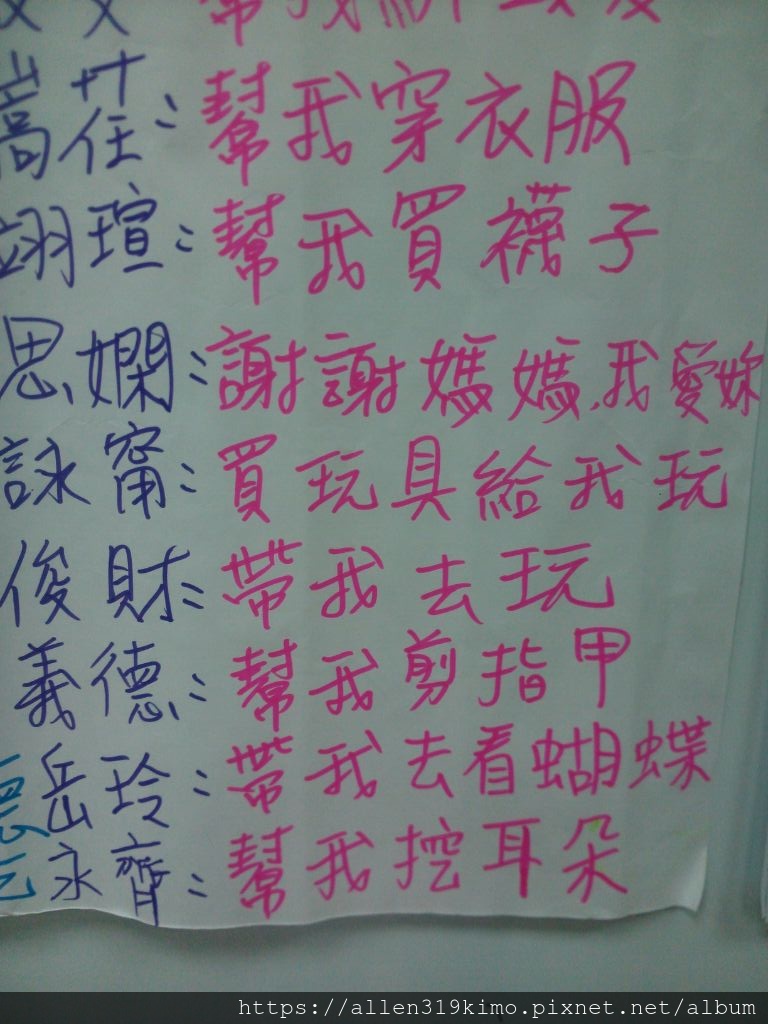 幫我
嵩荏:幫我穿衣服
翊瑄:幫我買襪子
思嫻:謝謝媽媽,我愛妳
詠甯:買玩具給我玩
俊財:帶我去玩
義德:幫我剪指甲
岳玲:帶我去看蝴蝶
永齊:幫我挖耳朵
https://allen319kimo.pixnet.net/album